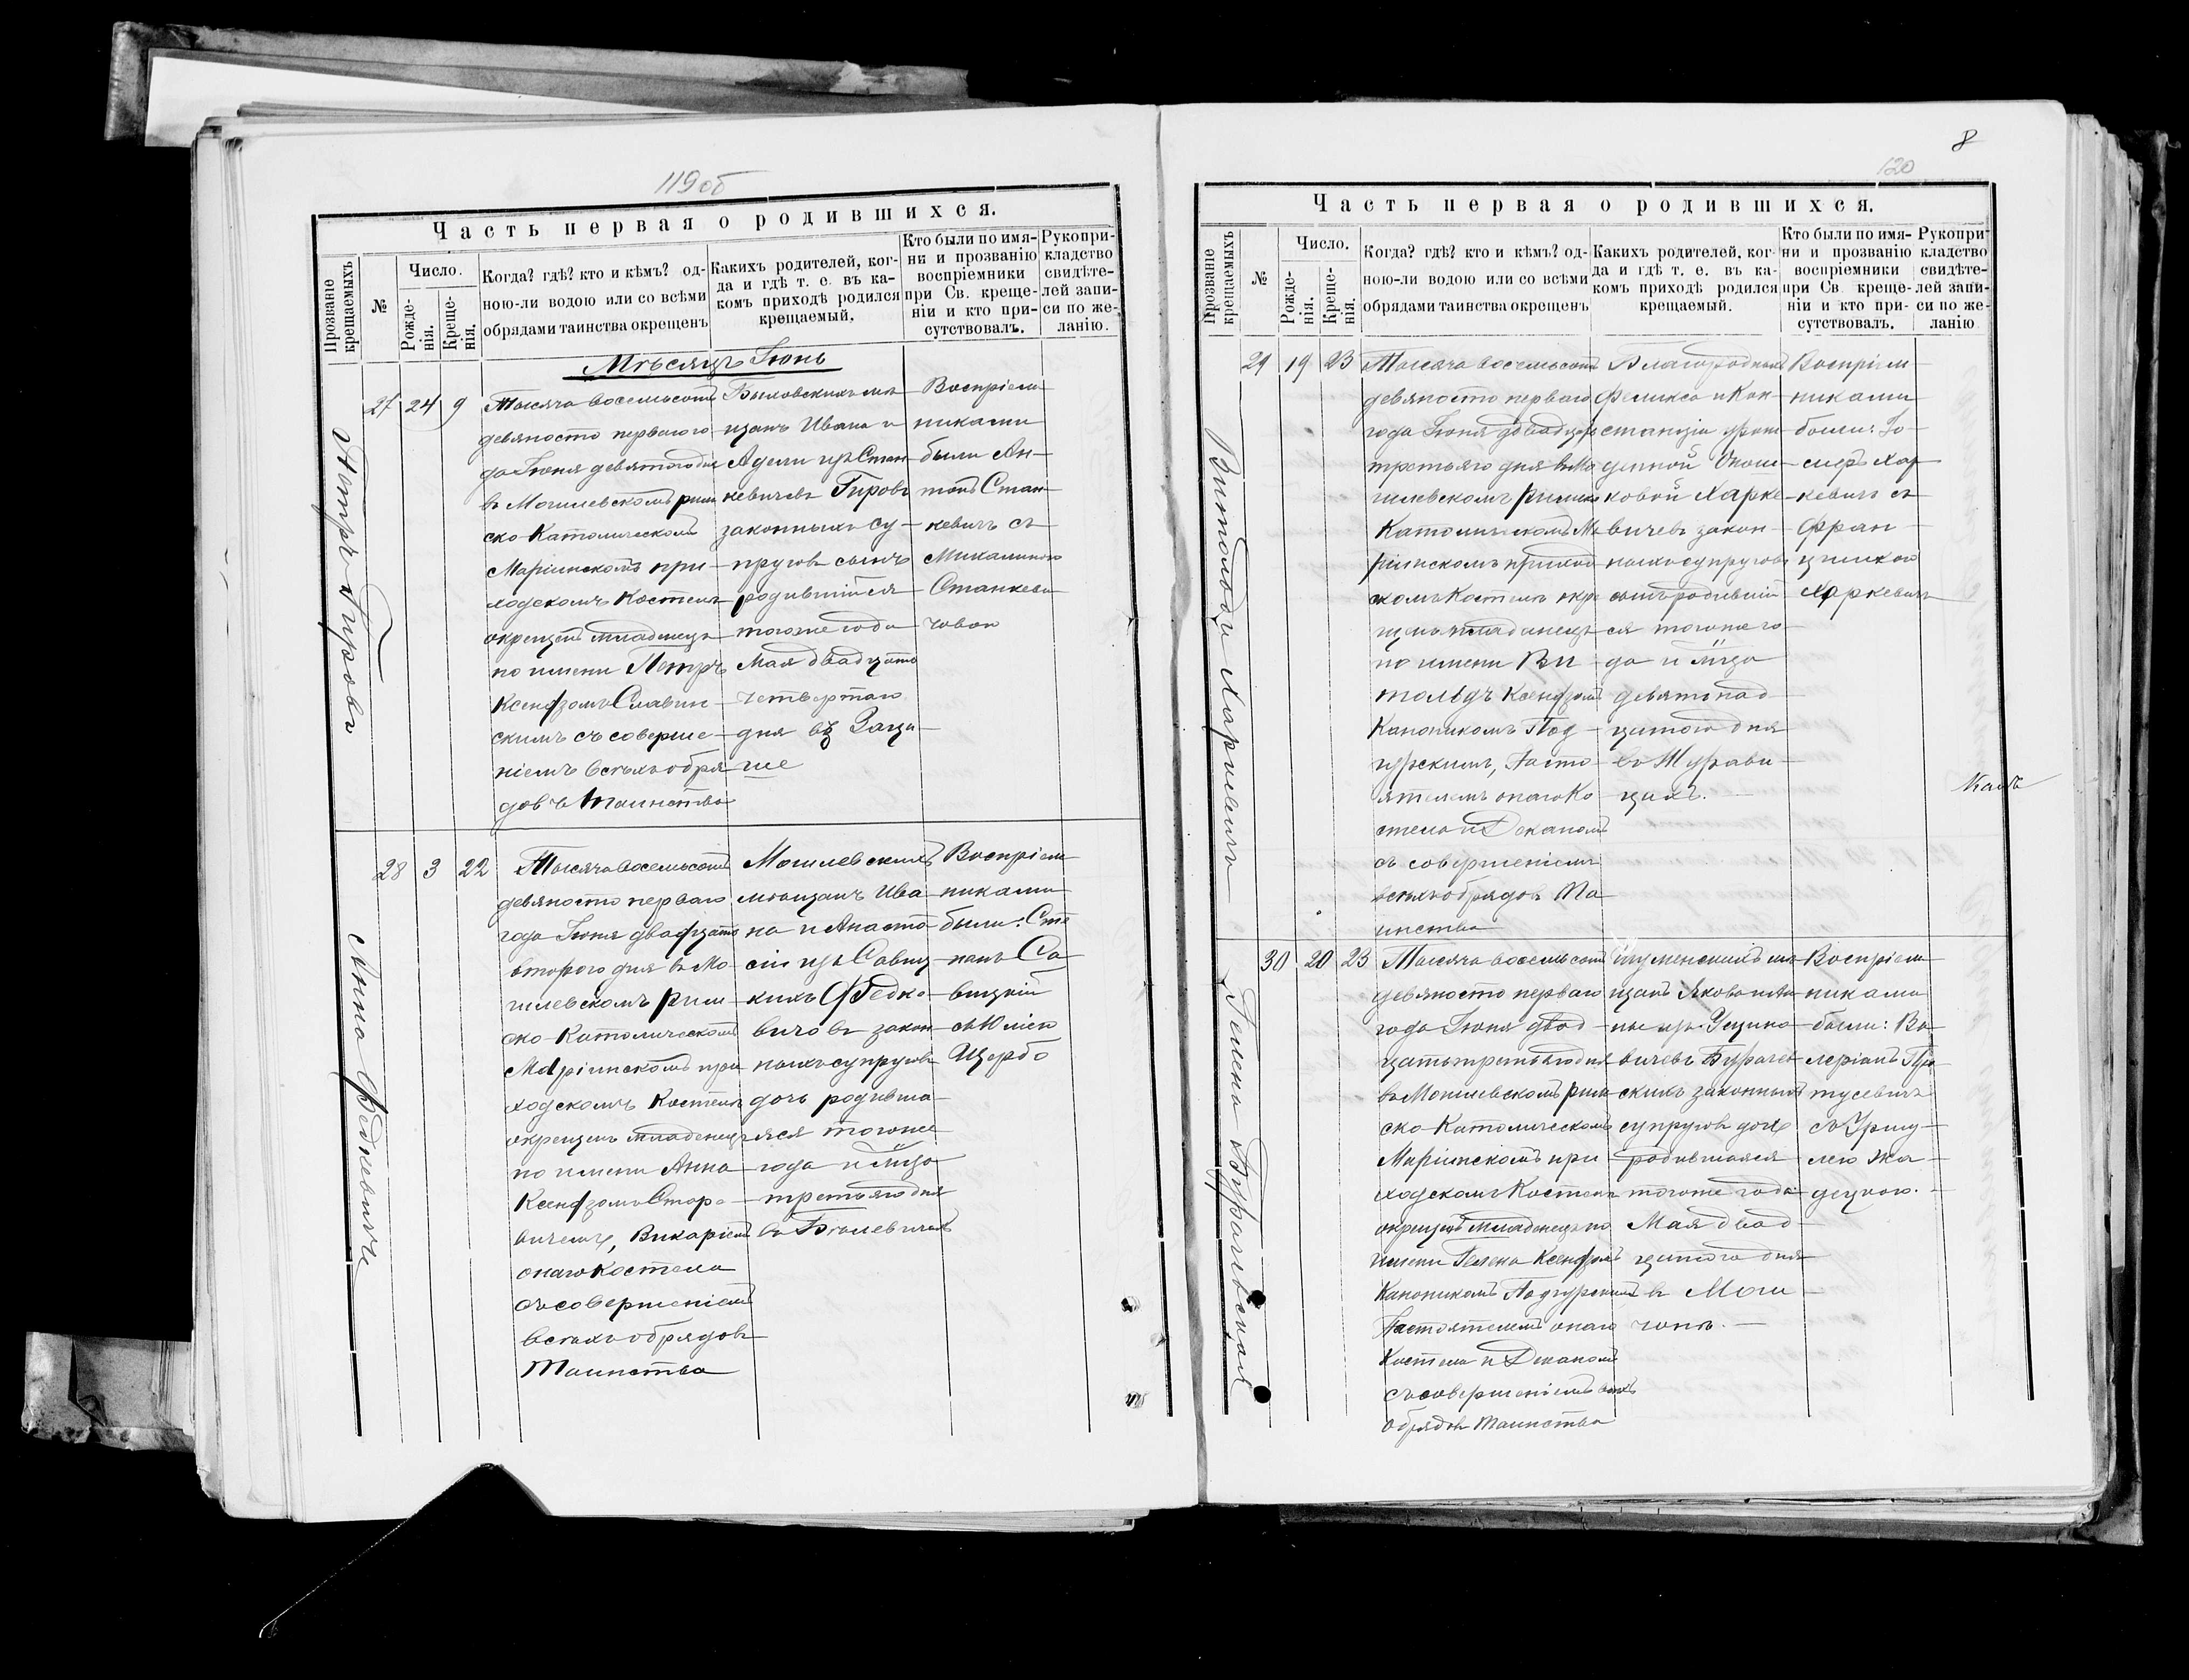 119 об
Часть первая о родившихся.
Прозваніе крещаемыхъ
№
Число.
Рожденія.
Крещенія.
Когда? гдѣ? кто и кѣмъ? од-
ною-ли водою или со всѣми
обрядами таинства окрещенъ
Какихъ родителей, ког-
да и гдѣ т. е. въ ка-
комъ приходѣ родился
крещаемый.
Кто были по имя-
ни и прозванію
воспріемники
при Св. креще-
ніи и кто при-
сутствовалъ.
Рукопри-
кладство
свидѣте-
лей запи-
си по же-
ланію.
Мѣсяцъ Іюнь
Петръ Гировъ
27 24 9
Тысяча восемьсотъ
девяносто перваго го
да Іюня девятого дня
въ Могилевскомъ рим
ско-Католическомъ
Маріинскомъ при-
ходскомъ Костелѣ
окрещенъ младенецъ
по имени Петръ
Ксендзомъ Славин-
скимъ съ соверше-
ніемъ всѣхъ обря
довъ Таинства
Быховскихъ мѣ
щанъ Ивана и
Адели изъ Стан-
кевичевъ Гировъ
законныхъ су-
пруговъ сынъ
родившійся
тогоже года
Мая двадцать
четвертаго
дня въ
Воспріем
никами
были Ан-
тонъ Стан-
кевичъ съ
Михалиною
Станкеви
човою
Анна Федковичъ
28 3 22
Тысяча восемьсотъ
девяносто перваго
года Іюня двадцать
второго дня въ Мо-
гилевскомъ рим-
ско-Католическомъ
Маріинскомъ при
ходскомъ Костелѣ
окрещенъ младенецъ
по имени Анна
Ксендзомъ
вичемъ, Викаріемъ
онаго Костела
съ совершеніемъ
всѣхъ обрядовъ
Таинства
Могилевскихъ
мѣщанъ Ива
на и Анаста
сіи изъ Савиц-
кихъ Федко-
вичовъ закон
ныхъ супруговъ
дочь родивша-
яся тогоже
года и м-ца
третьяго дня
въ
Воспріем
никами
были: Сте
панъ Са-
вицкій
съ Юліею
Щербо
8
120
Часть первая о родившихся.
Прозваніе крещаемыхъ
№
Число.
Рожденія.
Крещенія.
Когда? гдѣ? кто и кѣмъ? од-
ною-ли водою или со всѣми
обрядами таинства окрещенъ
Какихъ родителей, ког-
да и гдѣ т. е. въ ка-
комъ приходѣ родился
крещаемый.
Кто были по имя-
ни и прозванію
воспріемники
при Св. креще-
ніи и кто при-
сутствовалъ.
Рукопри-
кладство
свидѣте-
лей запи-
си по же-
ланію
Витольдъ Харкевичъ
29 19 23
Тысяча восемьсотъ
девяносто перваго
года Іюня двадцать
третьяго дня въ Мо
гилевскомъ Римско
Католическомъ Ма
ріинскомъ приход
скомъ Костелѣ окре
щенъ младенецъ
по имени Ви
тольдъ Ксендзомъ
Каноникомъ Под-
гурскимъ, Насто-
ятелемъ онаго Ко
стела и Деканомъ
съ совершеніемъ
всѣхъ обрядовъ Та
инства
Благородныхъ
Феликса и Кон-
станціи урож
денной
ковой Харке
вичевъ закон-
ныхъ супруговъ
сынъ родившій
ся тогоже го-
да и м-ца
девятьнад
цатого дня
въ Журави-
цахъ.
Воспріем
никами
были: Іо-
сифъ Хар
кевичъ съ
Фран-
цишкою
Харкевичъ
Казъ
Гелена Бурачевская
30 20 23
Тысяча восемьсотъ
девяносто перваго
года Іюня двад-
цать третьяго дня
въ Могилевскомъ рим
ско-Католическомъ
Маріинскомъ при
ходскомъ Костелѣ
окрещенъ младенецъ по
имени Гелена Ксендзомъ
Каноникомъ Подгурскимъ
Настоятелемъ онаго
Костела и Деканомъ
съ совершеніемъ всѣхъ
обрядовъ Таинства
Игуменскихъ мѣ
щанъ Якова и Ан
ны изъ
вичевъ Бурачев
скихъ законныхъ
супруговъ дочь
родившаяся
тогоже года
Мая двад-
цатого дня
въ Моги-
Воспріем
никами
были: Ва-
леріанъ
тусевичъ
съ Уршу-
лею